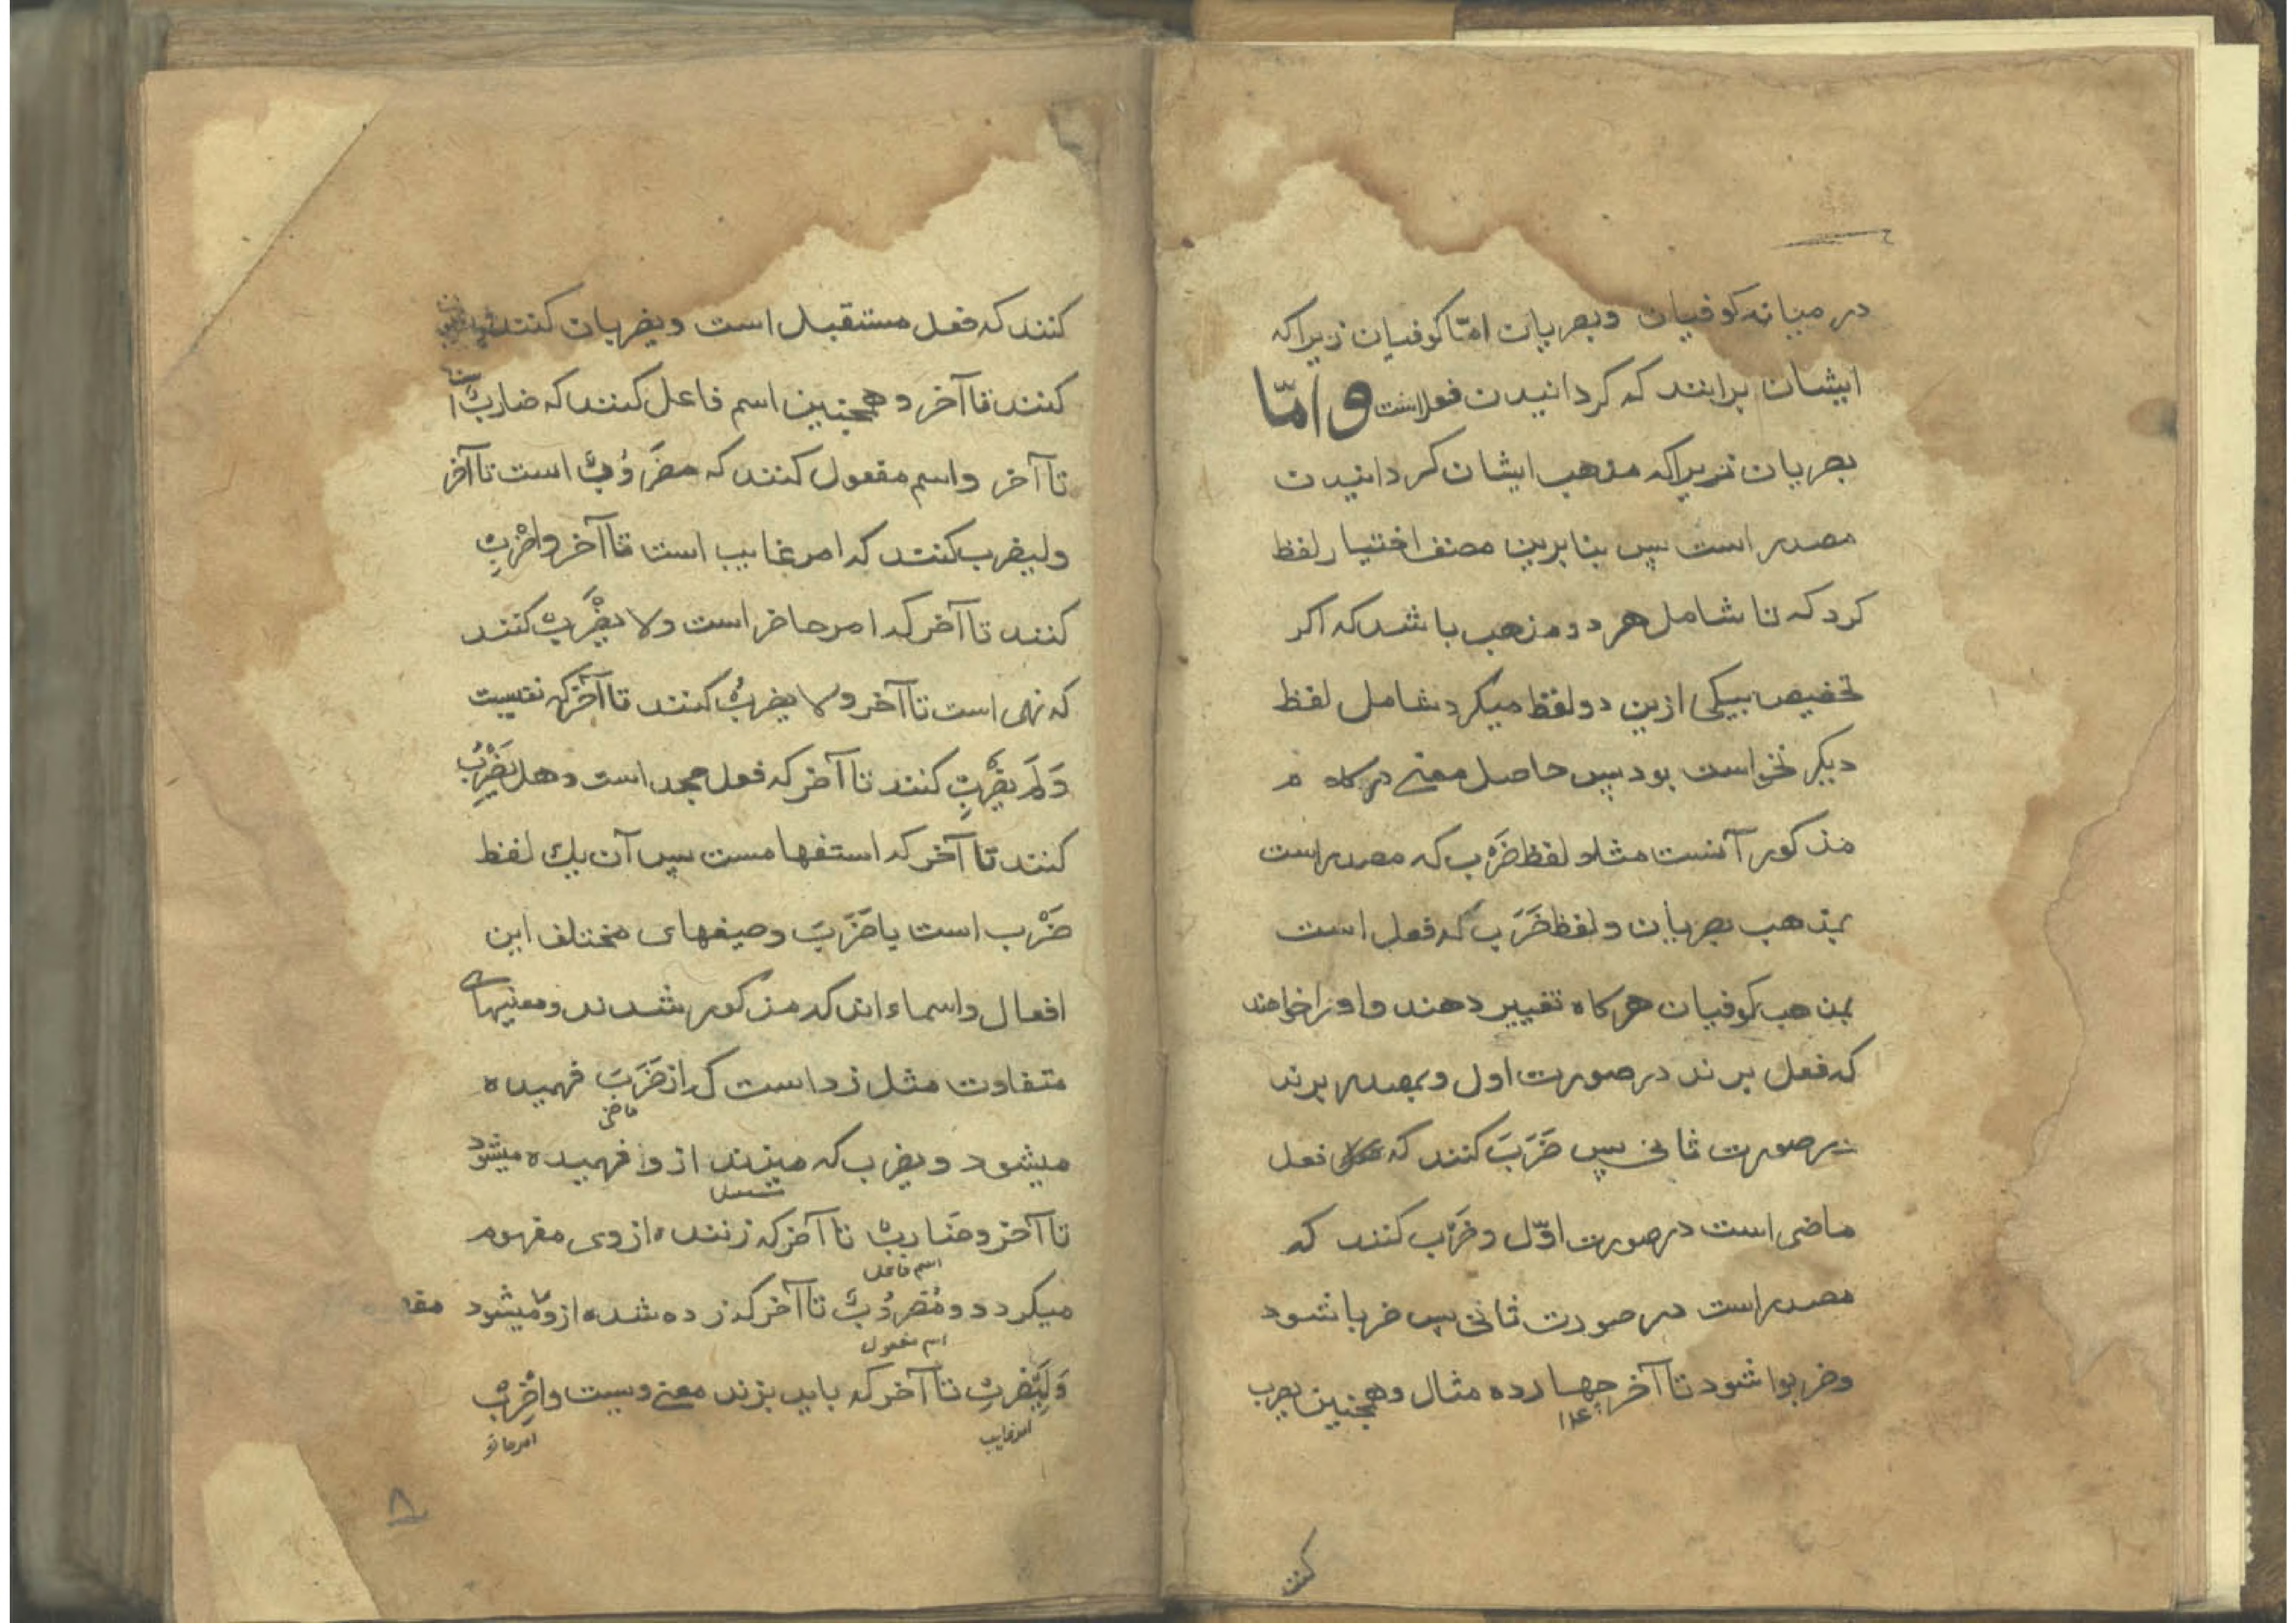 در میانه کوفیان وبصریان امّا کوفیان زیراکه
ایشان برانند که کردانیدن فعل است و امّا
بصریان زیراکه مذهب ایشان کردانیدن
مصدر است پس بنابرین مصنف اختیار لفظ
کرد که تا شامل هر دو مذهب باشد که اکر
تخصیص بیکی ازین دو لفظ میکرد شامل لفظ
دیکر نخواست بود پس حاصل معنی
مذکور آنست مثلا لفظ ضَرْب که مصدر است
بمذهب بصریان و لفظ ضَرَبَ که فعل است
بمذهب کوفیان هرکاه تغییر دهند و او را خواهند
که فعل برند در صورت اول وبمصدر برند
در صورت ثانی پس ضَرَبَ کنند که فعل
ماضی است در صورت اوّل و ضَرْب کنند که
مصدر است در صورت ثانی پس ضربا شود
وضربوا شود تا آخر چهارده مثال وهمچنین یضرب
۱۴
کنند
کنند که فعل مستقبل است ویضربان کنند
کنند تا آخر و همچنین اسم فاعل کنند که ضاربٌ است
تا آخر واسم مفعول کنند که مضرُوبٌ است تا آخر
ولیضرب کنند که امر غایب است تا آخر واضْرِبْ
کنند تا آخر که امر حاضر است ولا یضْرِبْ کنند
که نهی است تا آخر ولا یضربُ کنند تا آخر که نفیست
وَلَمْ یضْرِبْ کنند تا آخر که فعل جحد است وهل یَضْرِبُ
کنند تا آخر که استفهامست پس آن یک لفظ
ضَرْب است یا ضَرَبَ وصیغهای مختلف این
افعال واسماء اند که مذکور شدند ومعنیهای
متفاوت مثل زد است که از ضَرَبَ فهمیده
ماضی
میشود ویضرب که میزند از و فهمیده میشود
مستقبل
تا آخر وضَاربٌ تا آخر که زننده از وی مفهوم
اسم فاعل
میکردد ومَضرُوبٌ تا آخر که زده شده از و میشود
اسم مفعول
وَلِیَضْرِبْ تا آخر که باید بزند معنی ویست واضْرِبْ
امر غایب
امر حاضر
۸